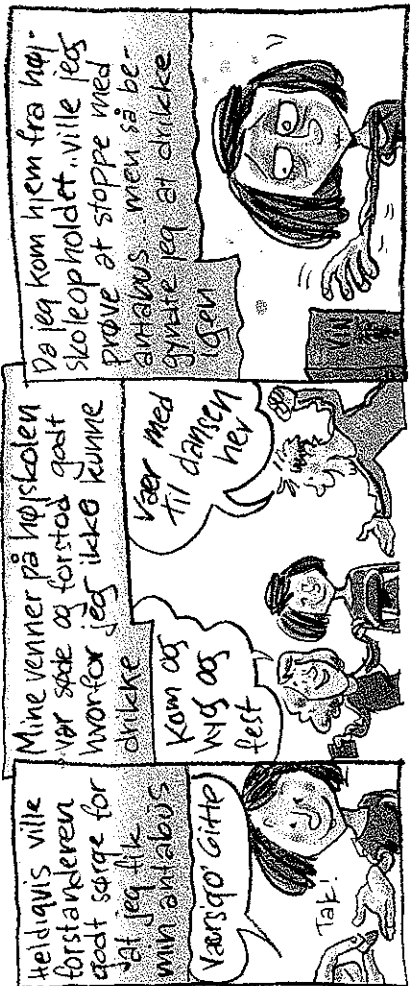 Heldigvis ville
forstanderen
godt sørge for
at jeg fik
min antabus
Værsgo' Gitte
Tak!
Mine venner på højskolen
var søde og forstod godt
hvorfor jeg ikke kunne
drikke
Kom og
hyg og
fest
Vær med
til dansen
her
Da jeg kom hjem fra høj-
skoleopholdet.. ville jeg
prøve at stoppe med
antabus... men så be-
gyndte jeg at drikke
igen